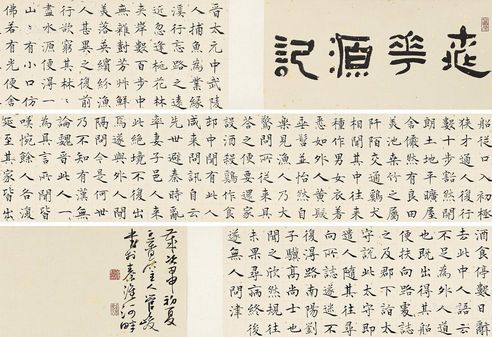 桃華源記
晉太元中武陵
人捕魚為業緣
溪行忘路之遠
近忽逢桃花林
夾岸數百步中
無雜樹芳艸鮮
美落英繽紛漁
人甚異之復前
行欲窮其林林
盡水源便得一
山山有小口仿
佛若有光便舍
船從口入初極
狹才通人復行
數十步豁然開
朗土地平曠屋
舍儼然有良田
美池桑竹之屬
阡陌交通雞犬
相聞其中往來
種作男女衣著
悉如外人黃髮
垂髫並怡然自
樂見漁人乃大
驚問所從來具
答之便要還家
設酒殺雞作食
邨中聞有此人
咸來問訊自云
先世避秦時亂
率妻子邑人來
此絕境不復出
焉遂與外人間
隔問今是何世
乃不知有漢無
論魏晉此人一
為具言所聞皆
嘆惋餘人各復
延至其家皆出
酒食停數日辭
去此中人語云
不足為外人道
也既出得其船
便扶向路處誌
之及郡下詣太
守說此太守即
遣人隨其往尋
向所誌遂迷不
復得路南陽劉
子驥高尚士也
聞之欣然規往
未果尋病終後
遂無人問津
歲次甲申初夏
主人管峻
書於秦淮河畔